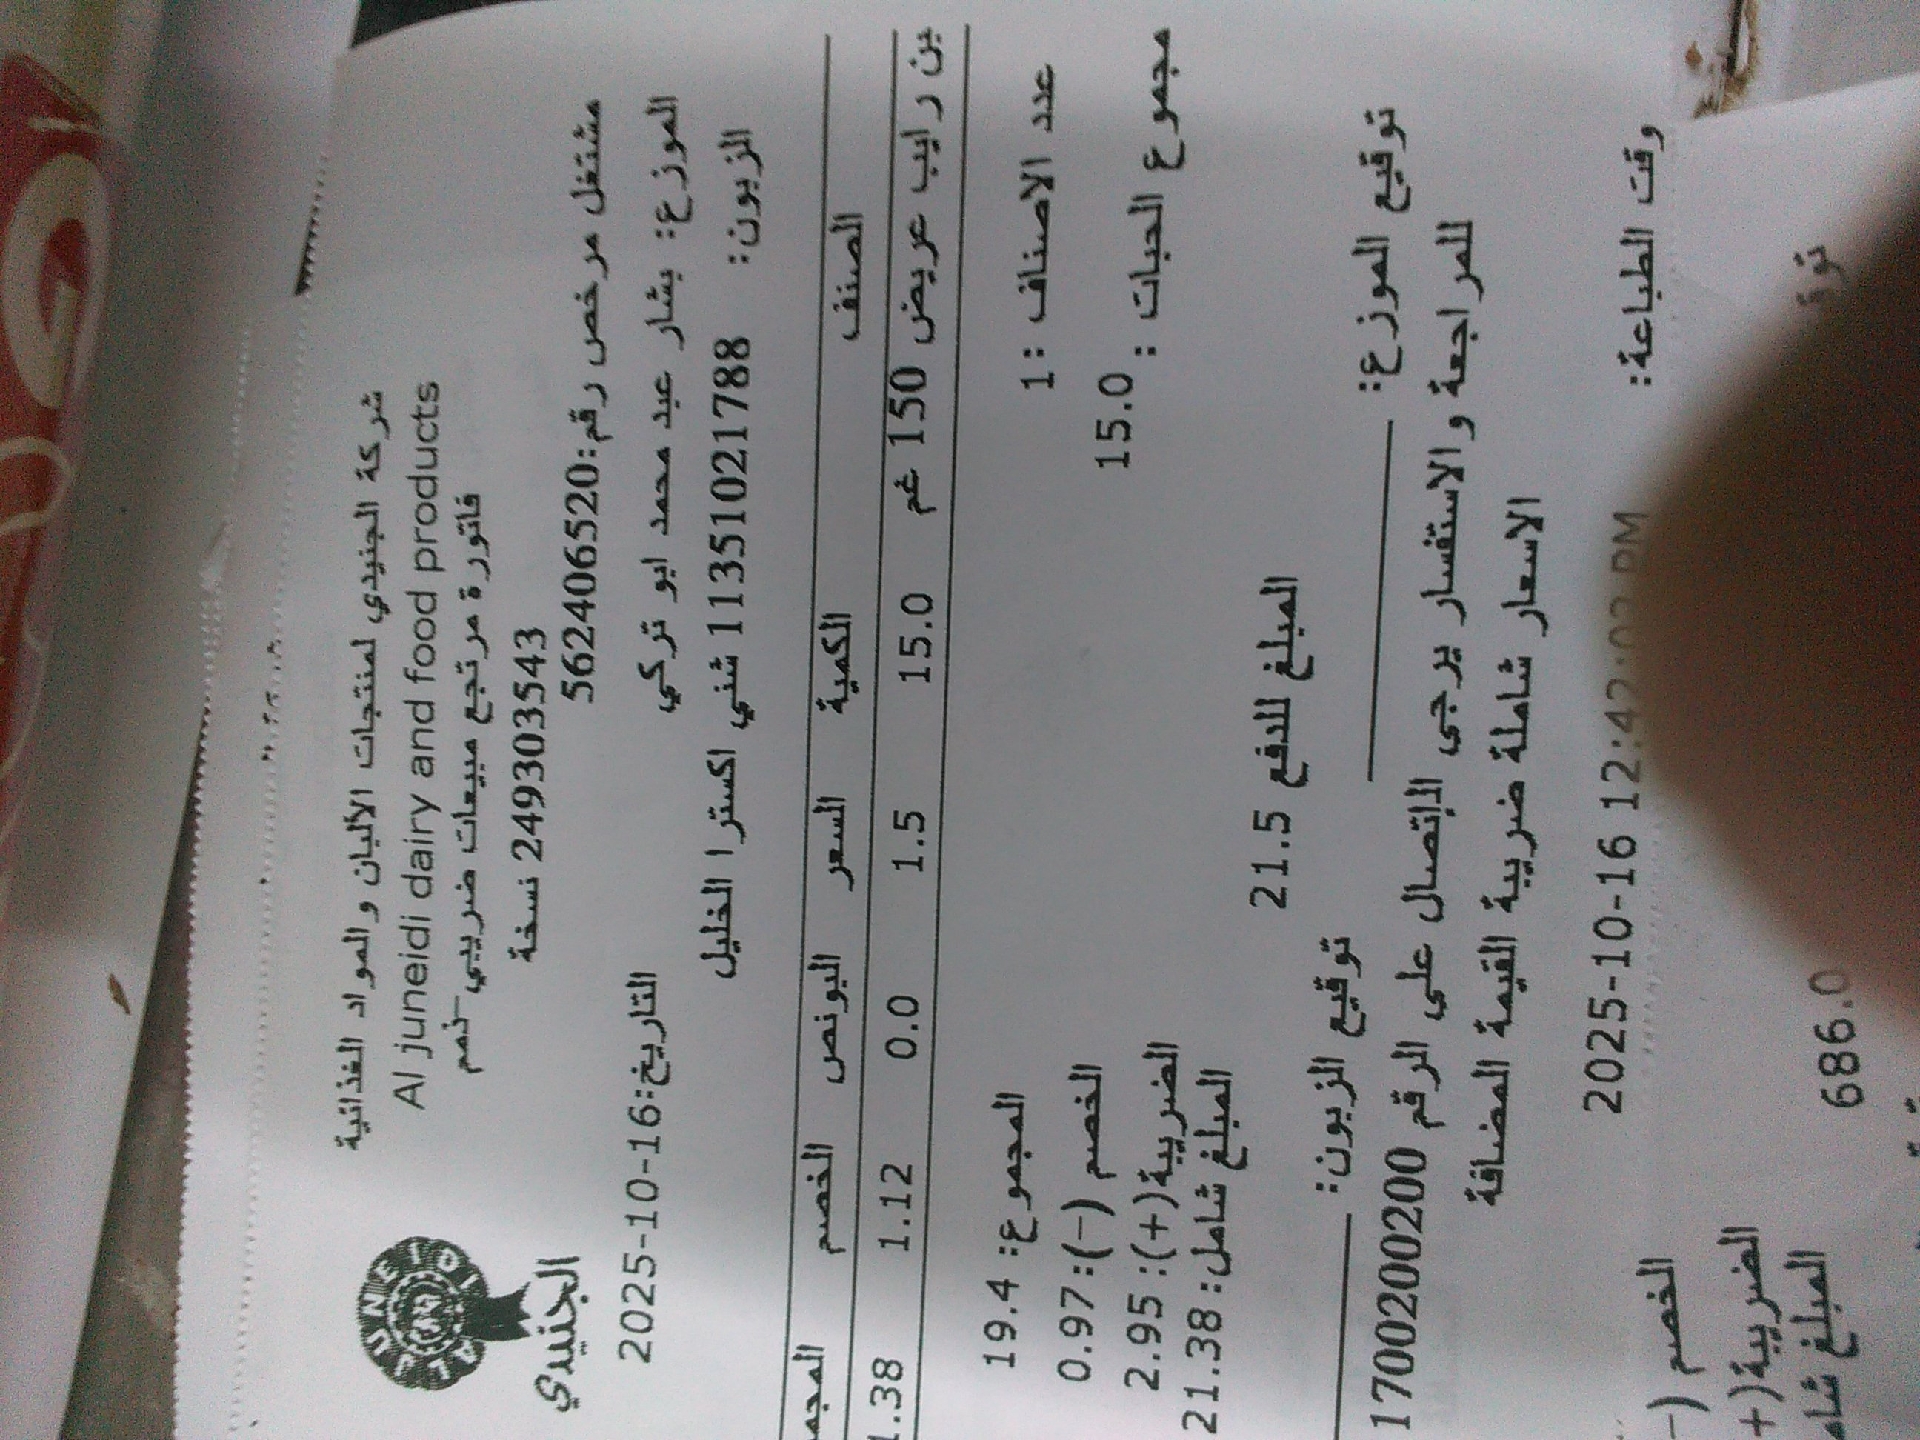 شركة الجنيدي لمنتجات الألبان والمواد الغذائية
Al juneidi dairy and food products
فاتورة مرتجع مبيعات ضريبي-نمم
249303543 نسخة
مشتغل مرخص رقم:562406520
AL JUNEIDI
الجنيدي
الموزع: بشار عبد محمد ابو تركي
التاريخ:2025-10-16
الزبون: 11351021788 شني اكسترا الخليل
الصنف الكمية السعر البونص الخصم المجم
بن رايب عريض 150 غم 15.0 1.5 0.0 1.12 1.38
عدد الاصناف :1
المجموع: 19.4
مجموع الحبات : 15.0
الخصم (-): 0.97
الضريبة(+): 2.95
المبلغ شامل: 21.38
المبلغ للدفع 21.5
توقيع الموزع:
توقيع الزبون:
للمراجعة والاستفسار يرجى الإتصال على الرقم 1700200200
الاسعار شاملة ضريبة القيمة المضافة
وقت الطباعة: 2025-10-16 12:42:02 PM
الخصم (-
الضريبة(+
المبلغ شام
686.0